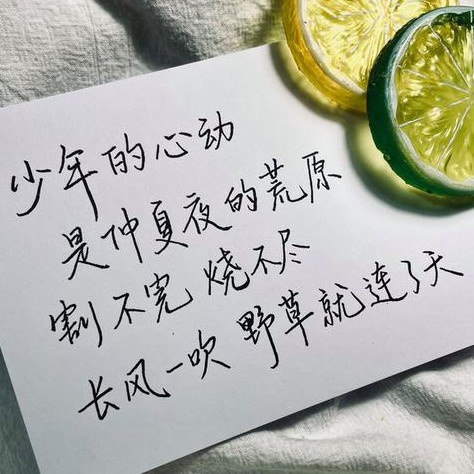 少年的心动
是仲夏夜的荒原
割不完 烧不尽
长风一吹 野草就连了天